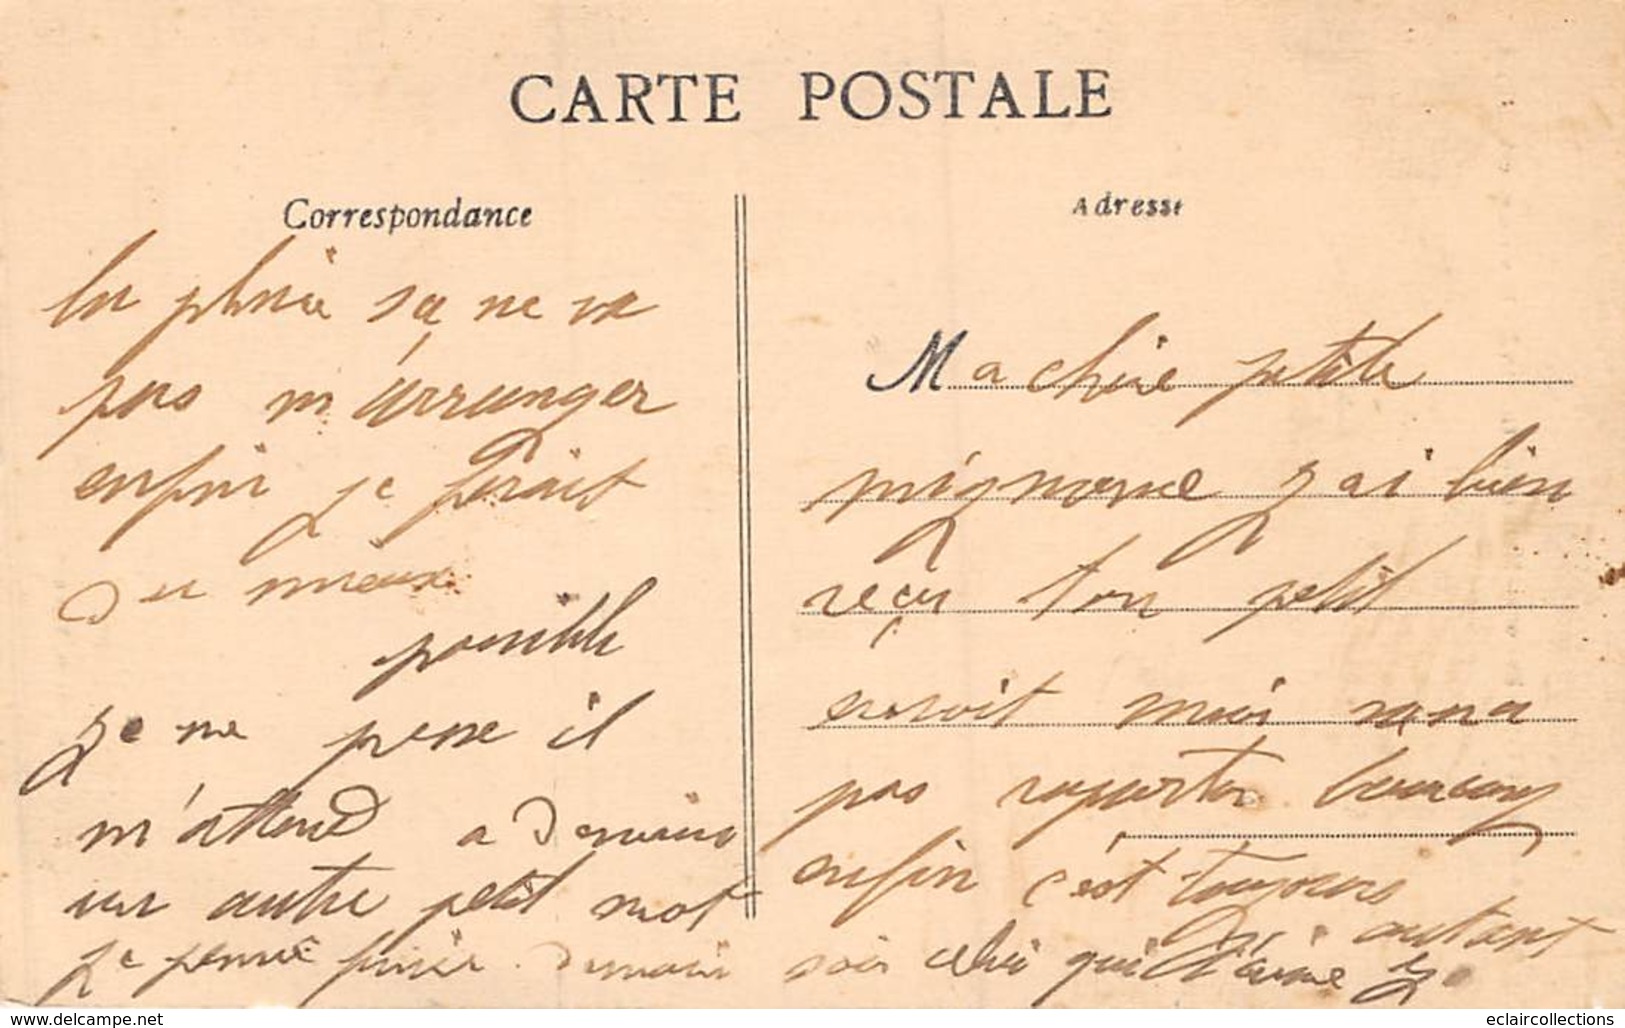 CARTE POSTALE
Correspondance
la pluie sa ne va
pas m'arranger
enfin je ferait
du mieux
possible
je ne pense il
m'attend a Demain
un autre petit mot
je pense finir Demain
Adresse
Ma chère petite
mignonne j'ai bien
reçu ton petit
moi
pas rapporter beaucoup
enfin c'est toujours
autant
soir celui qui t'aime
delcampe.net
eclaircollections